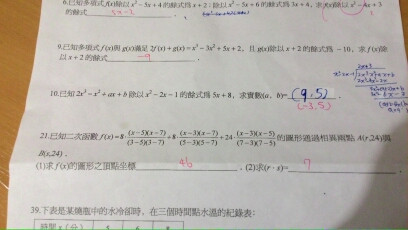 6.已知多項式 f(x)除以 x²−5x+4 的餘式為 x+2；除以 x²−5x+6 的餘式為 3x+4，求 f(x)除以 x²−4x+3
的餘式 5x-2 。
9.已知多項式 f(x)與 g(x)滿足 2f(x)+g(x)=x³−3x²+5x+2，且 g(x)除以 x+2 的餘式為 −10，求 f(x)除
以 x+2 的餘式為 -9 。
10.已知 2x³−x²+ax+b 除以 x²−2x−1 的餘式為 5x+8，求實數(a, b)= (9,5)
(-3,5)
21.已知二次函數 f(x)=8·(x−5)(x−7)/(3−5)(3−7)+8·(x−3)(x−7)/(5−3)(5−7)+24·(x−3)(x−5)/(7−3)(7−5) 的圖形通過相異兩點 A(r,24)與
B(s,24)。
(1)求 f(x)的圖形之頂點坐標 46 。(2)求(r·s)= 7
39.下表是某燒瓶中的水冷卻時，在三個時間點水溫的紀錄表：
時間 x（分） 5 6 8